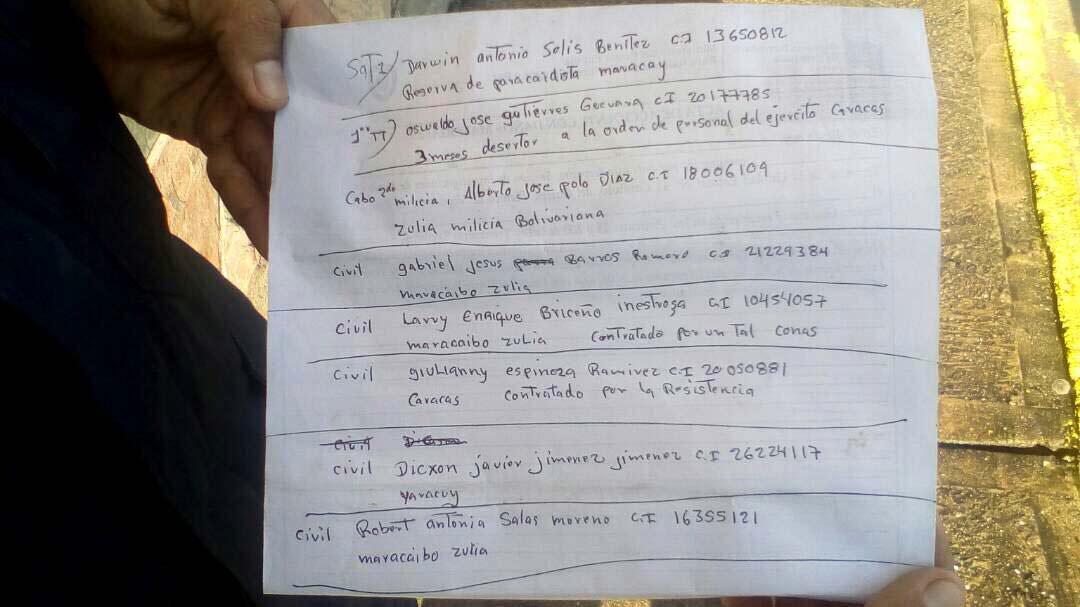 SgT2) Darwin antonio Solis Benitez C.I 13650812
Reserva de paracaidista maracay
1er TT) oswaldo jose gutierres Guevara C.I 20177785
3 meses desertor a la orden de personal del ejercito Caracas
Cabo 2do milicia, Alberto jose polo DIAZ C.I 18006109
Zulia milicia Bolivariana
civil gabriel jesus Barres Romero C.I 21229384
maracaibo zulia
civil Larry Enrique Briceño inestroga C.I 10454057
maracaibo zulia Contratado por un Tal conas
civil giulianny espinoza Ramirez C.I 20050881
Caracas contratado por la Resistencia
civil
civil Dicxon javier jimenez jimenez C.I 26224117
yaracuy
civil Robert antonia Salas moreno C.I 16355121
maracaibo zulia